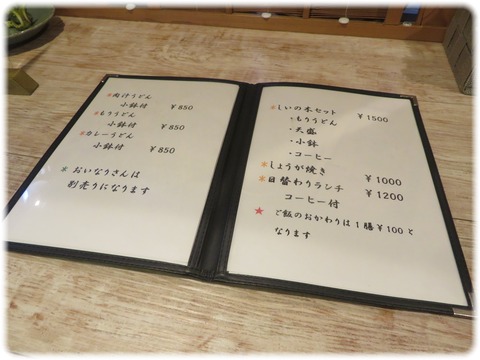 ※肉汁うどん
小鉢付 ¥850
※もりうどん
小鉢付 ¥850
※カレーうどん
小鉢付 ¥850
※ おいなりさんは
別売りになります
※しいの木セット ¥1500
・もりうどん
・天盛
・小鉢
・コーヒー
※しょうが焼き ¥1000
※日替わりランチ ¥1200
コーヒー付
★ ご飯のおかわりは1膳¥100と
なります